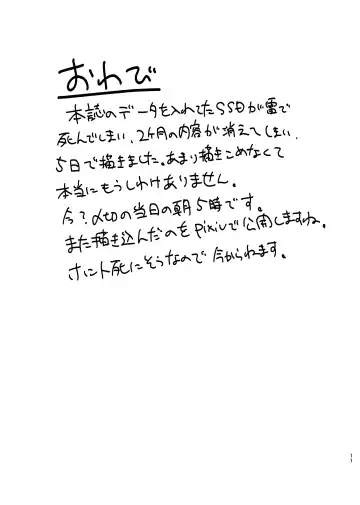 おわび
本誌のデータを入れてたSSDが雷で
死んでしまい、2ヶ月の内容が消えてしまい、
5日で描きました。あまり描きこめなくて
本当にもうしわけありません。
今?〆切の当日の朝5時です。
また描き込んだのをpixivで公開しますね。
さに死にそうなので今からねます。